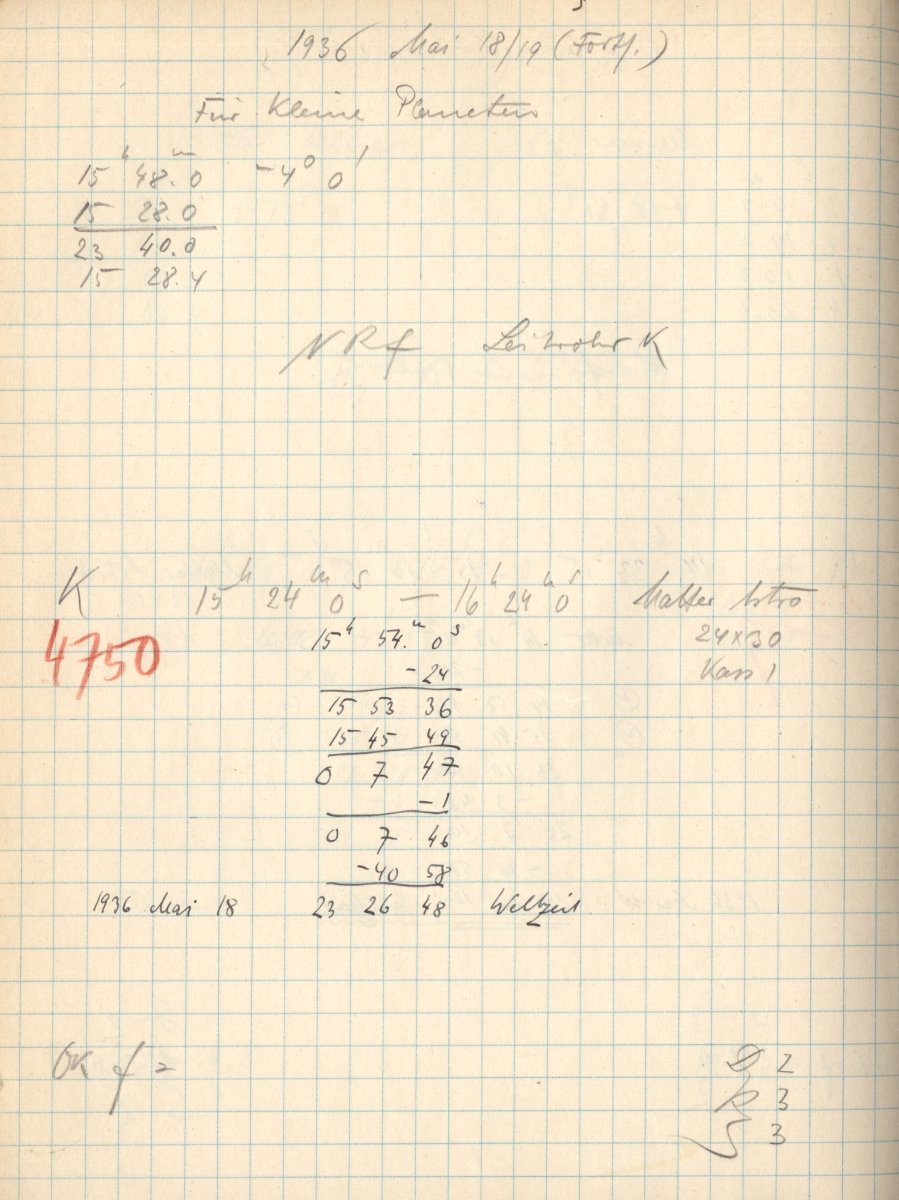 1936 Mai 18/19 (Forts.)
Für Kleine Planeten
15ʰ 48.ᵐ0 -4° 0'
15 28.0
23 40.0
15 28.4
NRf Leitrohr K
K 15ʰ 24ᵐ 0ˢ — 16ʰ 24ᵐ 0ˢ Astro
4750 15ʰ 54.ᵐ 0ˢ 24x30
-24 Kass 1
15 53 36
15 45 49
0 7 47
-1
0 7 46
-40 58
1936 Mai 18 23 26 48 Weltzeit
OK f =
D 2
R 3
S 3